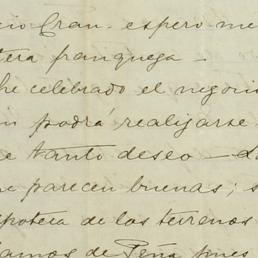 cio Gran. espero me
tera franqueza -
he celebrado el negocio
n podrá realizarse
e tanto deseo - La
ne parecen buenas; s
ipoteca de los terrenos
lamos de Peña pues